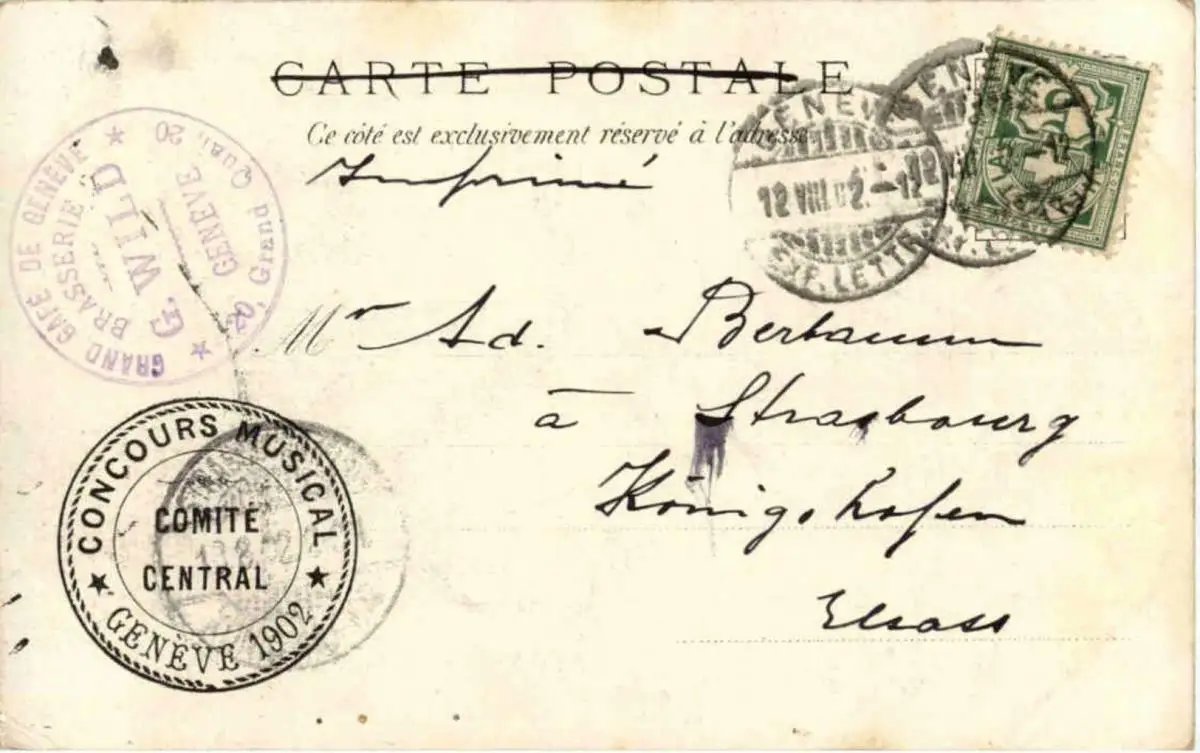 CARTE POSTALE
Ce côté est exclusivement réservé à l'adresse
Imprimé
GENÈVE
12 VIII 02
EXP. LETTR
GRAND CAFÉ DE GENÈVE
BRASSERIE
G. WILD
GENÈVE
20, Grand Quai, 20
Mr Ad. Bertaumm
à Strasbourg
Königshofen
Elsass
CONCOURS MUSICAL
COMITÉ
CENTRAL
GENÈVE 1902